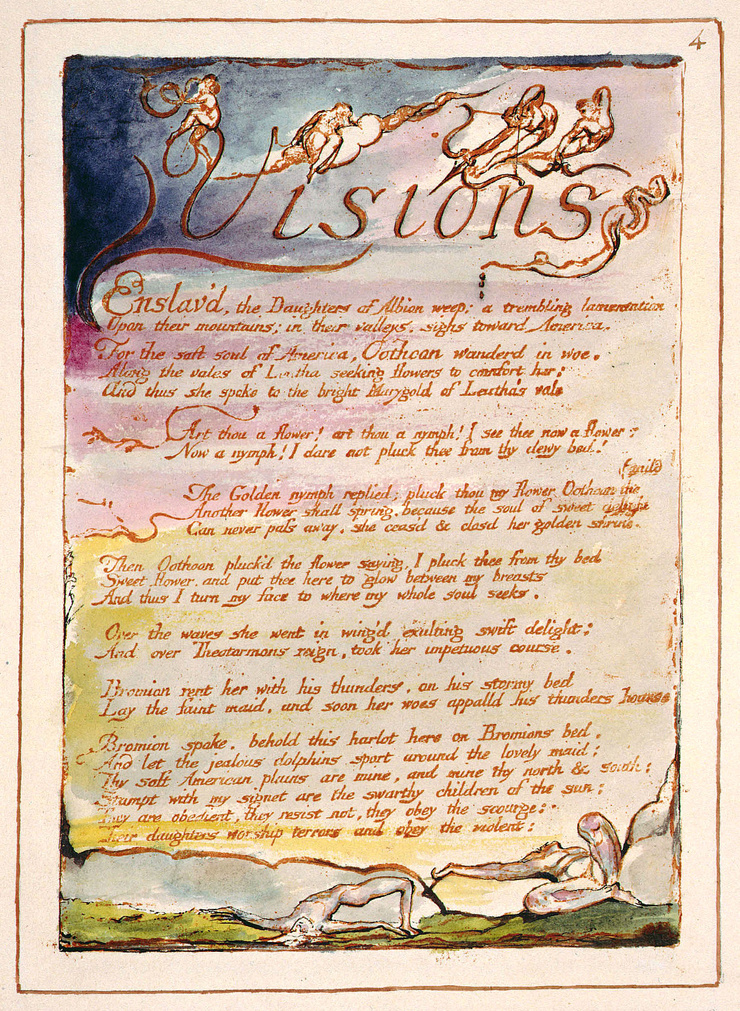 4
Visions
Enslav'd, the Daughters of Albion weep; a trembling lamentation
Upon their mountains; in their valleys, sighs toward America.
For the soft soul of America, Oothoon wanderd in woe,
Along the vales of Leutha seeking flowers to comfort her;
And thus she spoke to the bright Marygold of Leutha's vale
Art thou a flower! art thou a nymph! I see thee now a flower;
Now a nymph! I dare not pluck thee from thy dewy bed!
(mild
The Golden nymph replied; pluck thou my flower Oothoon the
Another flower shall spring, because the soul of sweet delight
Can never pass away. she ceas'd & clos'd her golden shrine.
Then Oothoon pluck'd the flower saying, I pluck thee from thy bed
Sweet flower. and put thee here to glow between my breasts
And thus I turn my face to where my whole soul seeks.
Over the waves she went in wing'd exulting swift delight;
And over Theotormons reign, took her impetuous course.
Bromion rent her with his thunders. on his stormy bed
Lay the faint maid, and soon her woes appalld his thunders hoarse
Bromion spoke. behold this harlot here on Bromions bed,
And let the jealous dolphins sport around the lovely maid;
Thy soft American plains are mine, and mine thy north & south:
Stampt with my signet are the swarthy children of the sun:
They are obedient, they resist not, they obey the scourge:
Their daughters worship terrors and obey the violent: